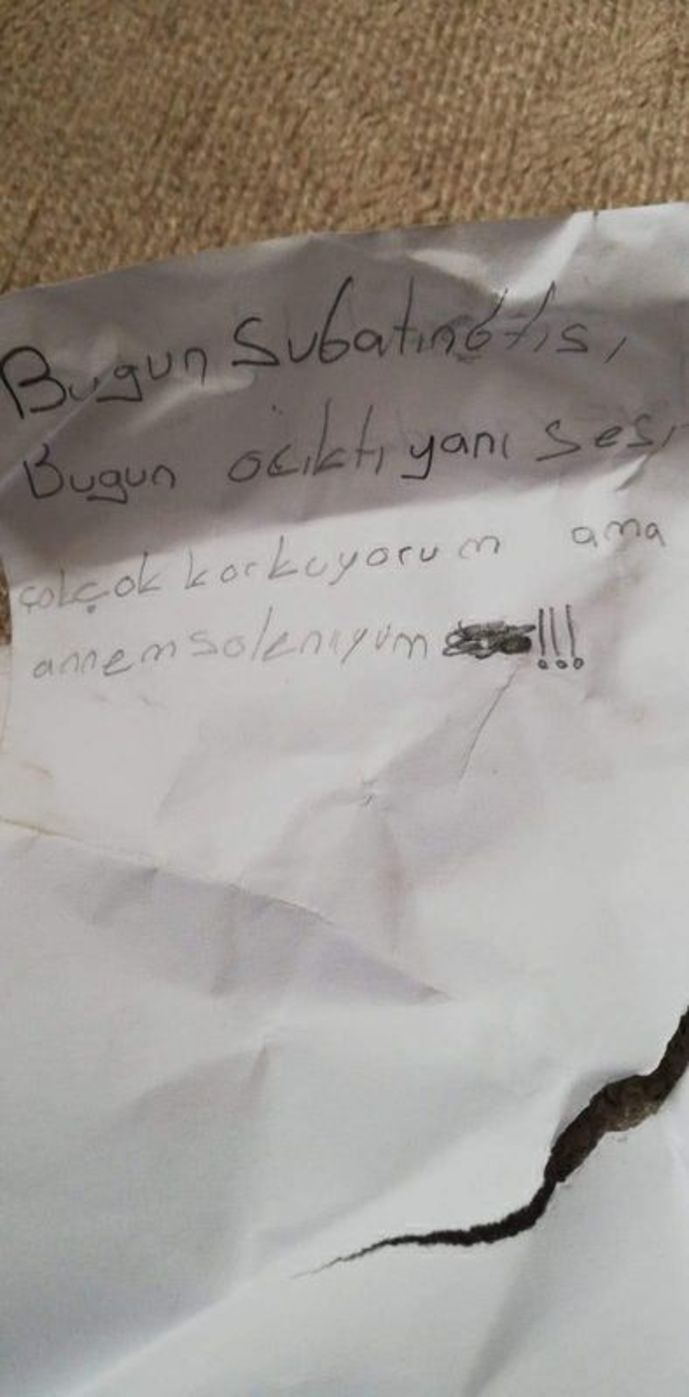 Bugun Subatın 6 tısı,
Bugun o çıktı yanı sesı
çok çok korkuyorum ama
annem solenıyum !!!